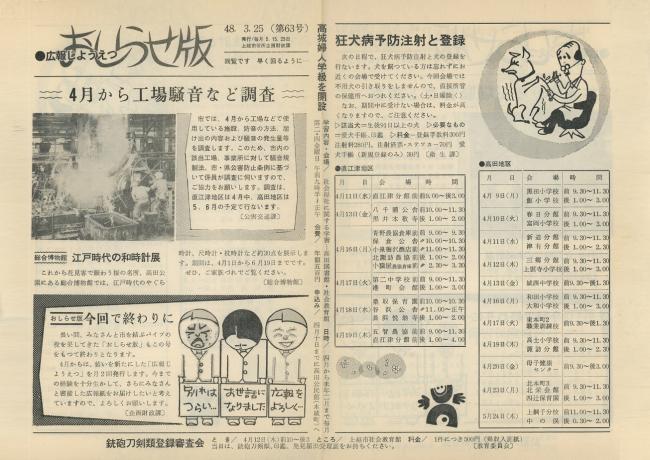 ●広報じようえつ
おしらせ版
48. 3.25 (第63号)
発行/毎月 5. 15. 25日
上越市役所企画財政課
回覧です 早く回るように
4月から工場騒音など調査
市では、4月から工場などで使
用している施設、防音の方法、届
け出の内容および騒音の発生量等
を調査します。このため、市内の
該当工場、事業所に対して騒音規
制法、市・県公害防止条例に基づ
いて係員が調査に伺いますので、
ご協力をお願いします。調査は、
直江津地区は4月中、高田地区は
5、6月の予定で行ないます。
〔公害交通課〕
総合博物館
江戸時代の和時計展
これから花見客で賑わう桜の名所、高田公
園にある総合博物館では、江戸時代のやぐら
時計、尺時計・枕時計など約30点を展示しま
す。期間は、4月1日から6月19日までです。
ぜひ、ご家族づれでご覧ください。
〔総合博物館〕
おしらせ版
今回で終わりに
長い間、みなさんと市を結ぶパイプの
役を果してきた「おしらせ版」もこの号
をもつて終わりとなります。
4月からは、装いを新たにした「広報じ
ようえつ」を月2回発行します。今まで
の経験を十分生かして、さらにみなさん
と密着した広報紙をお届けしたいと考え
ていますので、よろしくお願いします。
〔企画財政課〕
別れは
つらい…
お世話に
なりました
広報を
よろしく…
高城婦人学級を開設
学習内容・会場/社会福祉に関する学習・高田図書館・社会教育館
日時/四月から来年二月まで毎月
第二・四金曜日 午前九時半~正午
会費/年額五百円
申込み/四月十日までに高田公民館(本城町)へ
狂犬病予防注射と登録
次の日程で、狂犬病予防注射と犬の登録を
行ないます。犬を飼つている方は忘れずにお
近くの会場で受けてください。今回会場では
不用犬の引き取りをしませんので、直接所管
の保健所へおつれください。(土・日曜除く)
なお、期間中に受けない場合は、料金が高
くなりますので、ご注意ください。
▷該当犬=生後91日以上の犬 ▷必要なもの
=愛犬手帳、印鑑 ▷料金=登録手数料300円
注射料280円、注射済票・ステッカー70円 愛
犬手帳(新規登録のみ)30円 〔衛生課〕
●直江津地区
月 日 会 場 時 間
4月11日(水) 直江津分館前 前9.00~後3.00
4月13日(金) 八千浦公舎 前10.00~11.30
黒井本敬寺 後1.00~2.30
4月16日(月)
4月17日(火) 第二中学校 前9.00~11.30
4月18日(水)
4月19日(木) 五智農協前 前9.00~11.30
直江津分館前 後1.00~3.00
●高田地区
月 日 会 場 時 間
4月9日(月) 黒田小学校 前9.30~11.30
飯小学校 後1.00~3.00
4月10日(火) 春日分館 前9.30~11.30
富岡小学校 後1.00~3.00
4月11日(水) 新道分館 前9.30~11.30
津有分館 後1.00~2.30
4月12日(木) 三郷分館 前9.30~11.30
上雲寺小学校 後1.00~3.00
4月13日(金) 城西中学校 前9.30~後3.00
4月16日(月) 和田小学校 前9.30~11.30
大和小学校 後1.00~3.00
4月17日(火) 東本町2
職業訓練校 前9.30~後1.30
4月19日(木) 高士小学校 前9.30~11.30
諏訪分館 後1.00~2.00
4月20日(金) 母子健康
センター 前9.30~後3.00
4月23日(月) 北本町3
北栄会館 前9.30~11.30
四辻保育園 後1.00~3.00
5月24日(木) 上綱子分校 前11.00~11.30
中の俣 後0.30~2.00
銃砲刀剣類登録審査会
とき/ 4月12日(木)前10~後3 ところ/ 上越市社会教育館 料金/ 1件につき300円(県収入証紙)
当日は、銃砲刀剣類、印鑑、発見届出受理証をお持ちください。 〔教育委員会〕